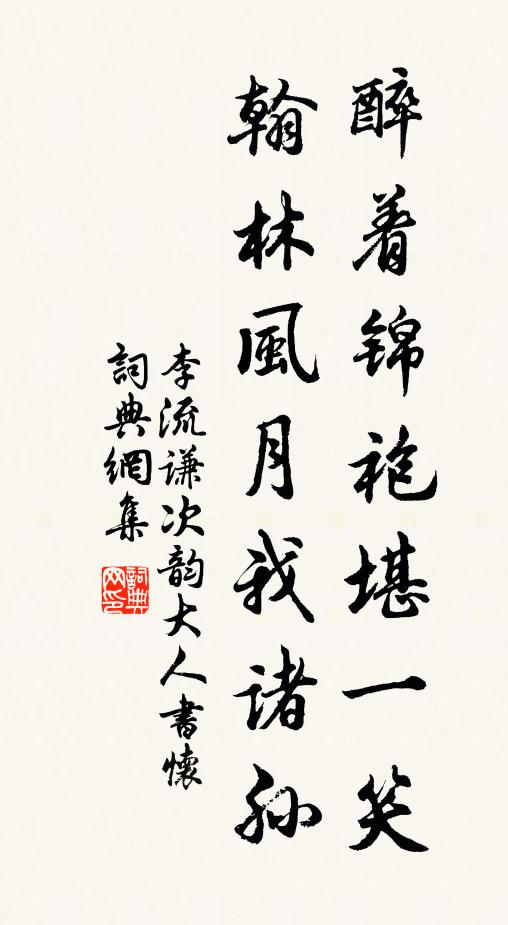 醉着锦袍堪一笑
翰林風月我诸孙
李流谦次韵大人書懷
詞典網集
詞典網印